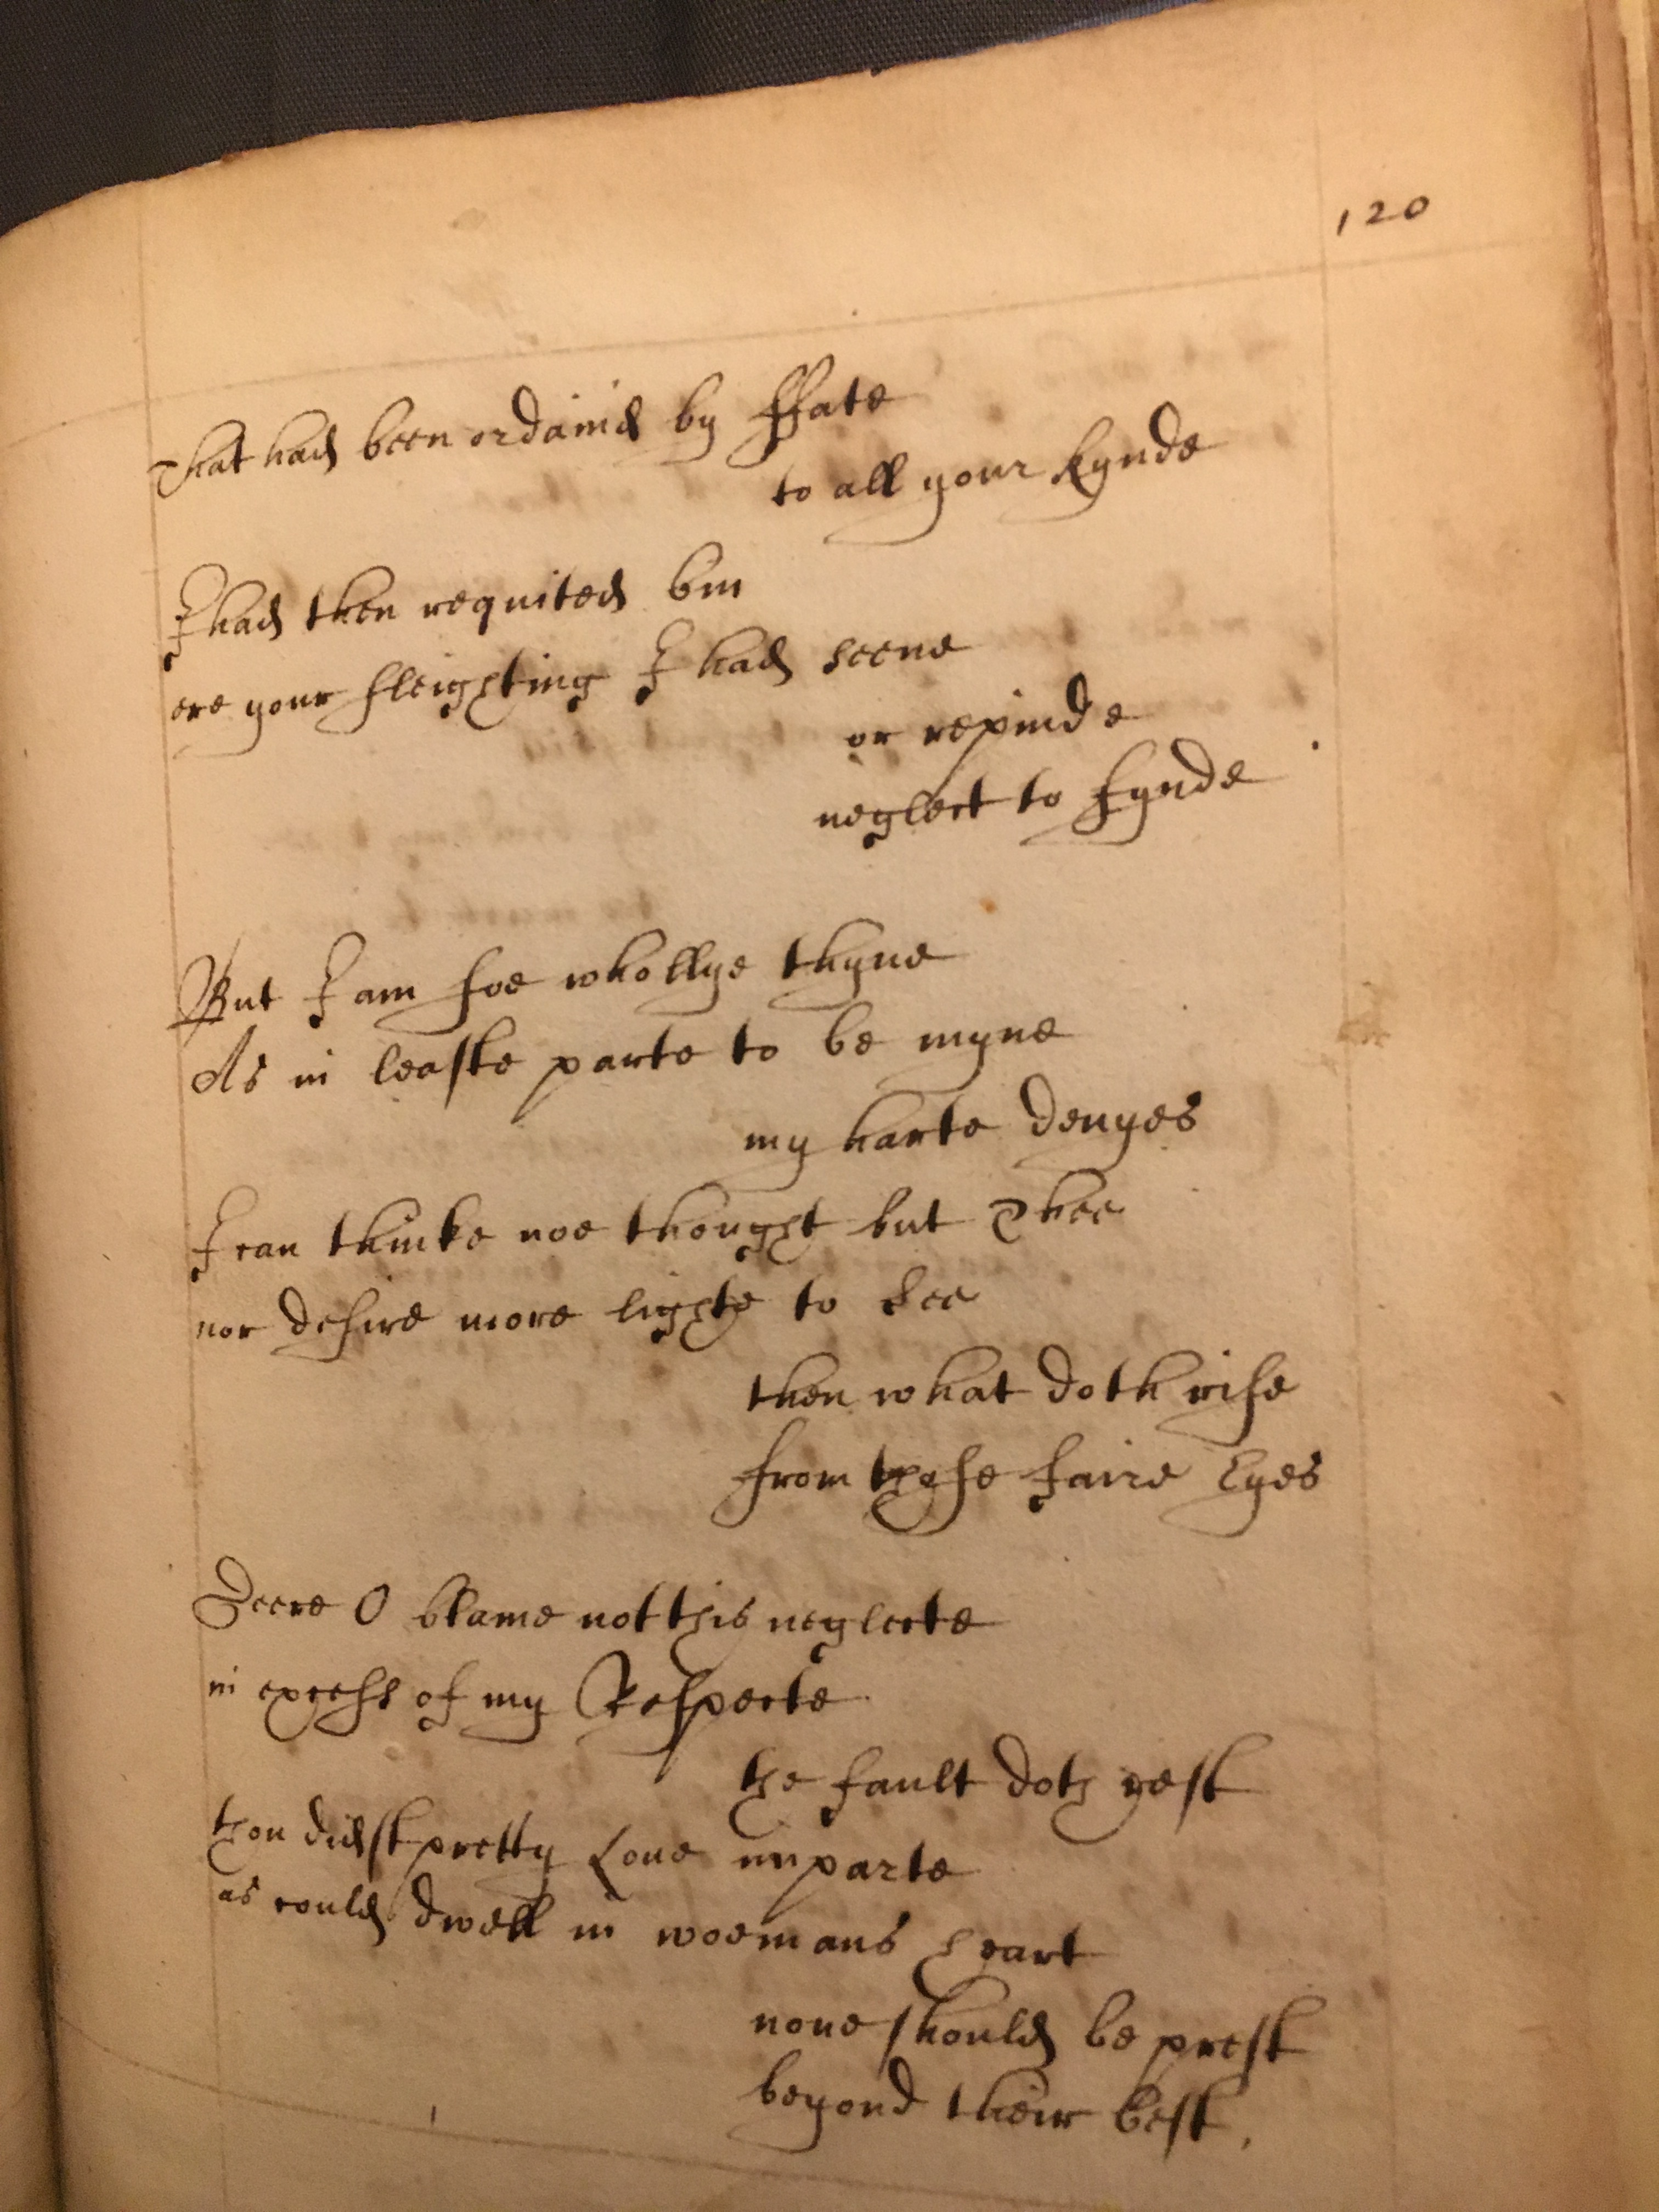 120
That had been ordaind by ffate
to all your kynde
I had then requited bin
ere your sleighting I had seene
or repind e
neglect to fynde
But I am soe whollye thyne
As in leaste parte to be myne
my harte denyes
I can thinke noe thought but Thee
nor desire more lighte to see
then what doth rise
from those faire Eyes
Deere O blame not this neglecte
in excess of my Respecte
the fault doth rest
thou didst pretty Loue imparte
as could dwell in woemans heart
none should be prest
beyond their best,